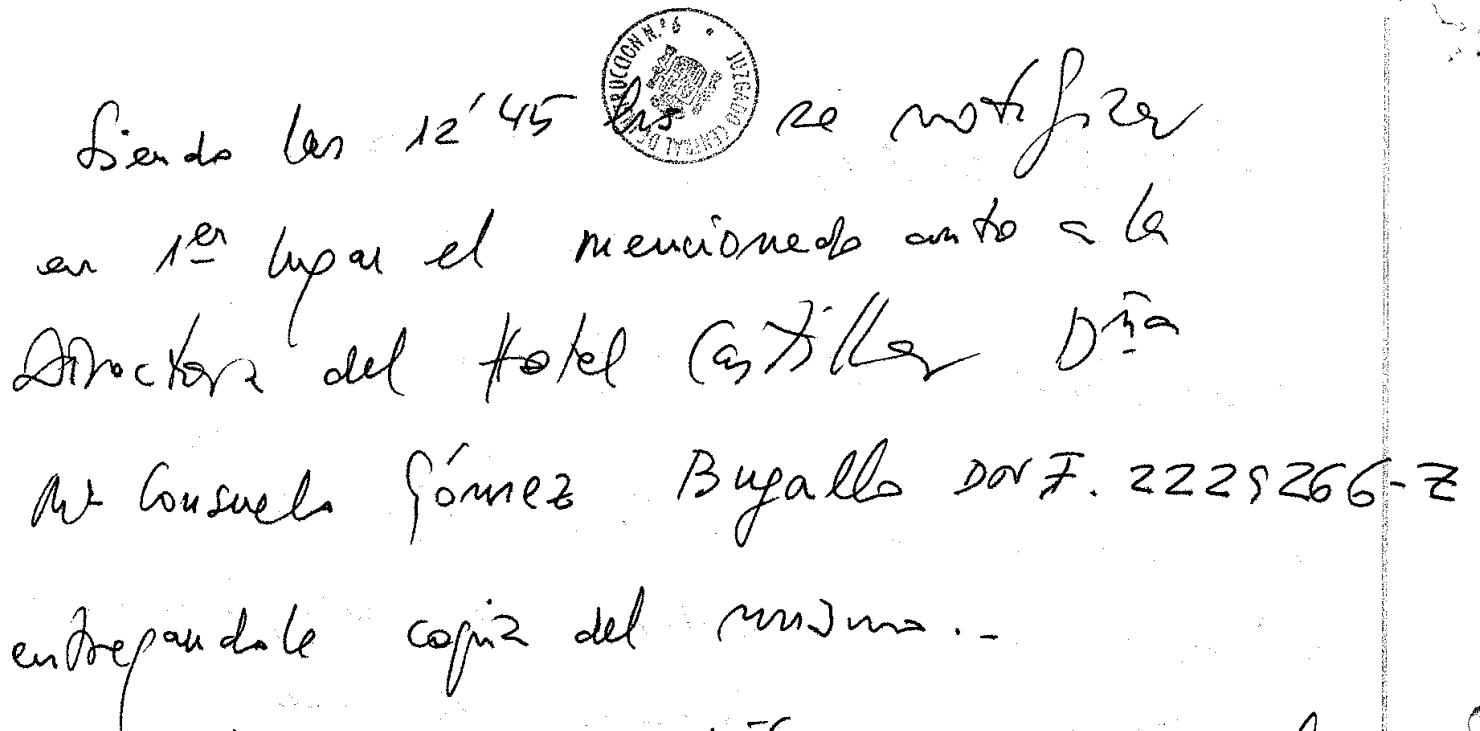 JUZGADO CENTRAL DE INSTRUCCION N.º 6
Siendo las 12'45 hrs se notifica
en 1er lugar el mencionado auto a la
Directora del Hotel Castilla Dña
Mª Consuelo Gómez Bugallo DNI. 2229266-Z
entregandole copia del mismo.-